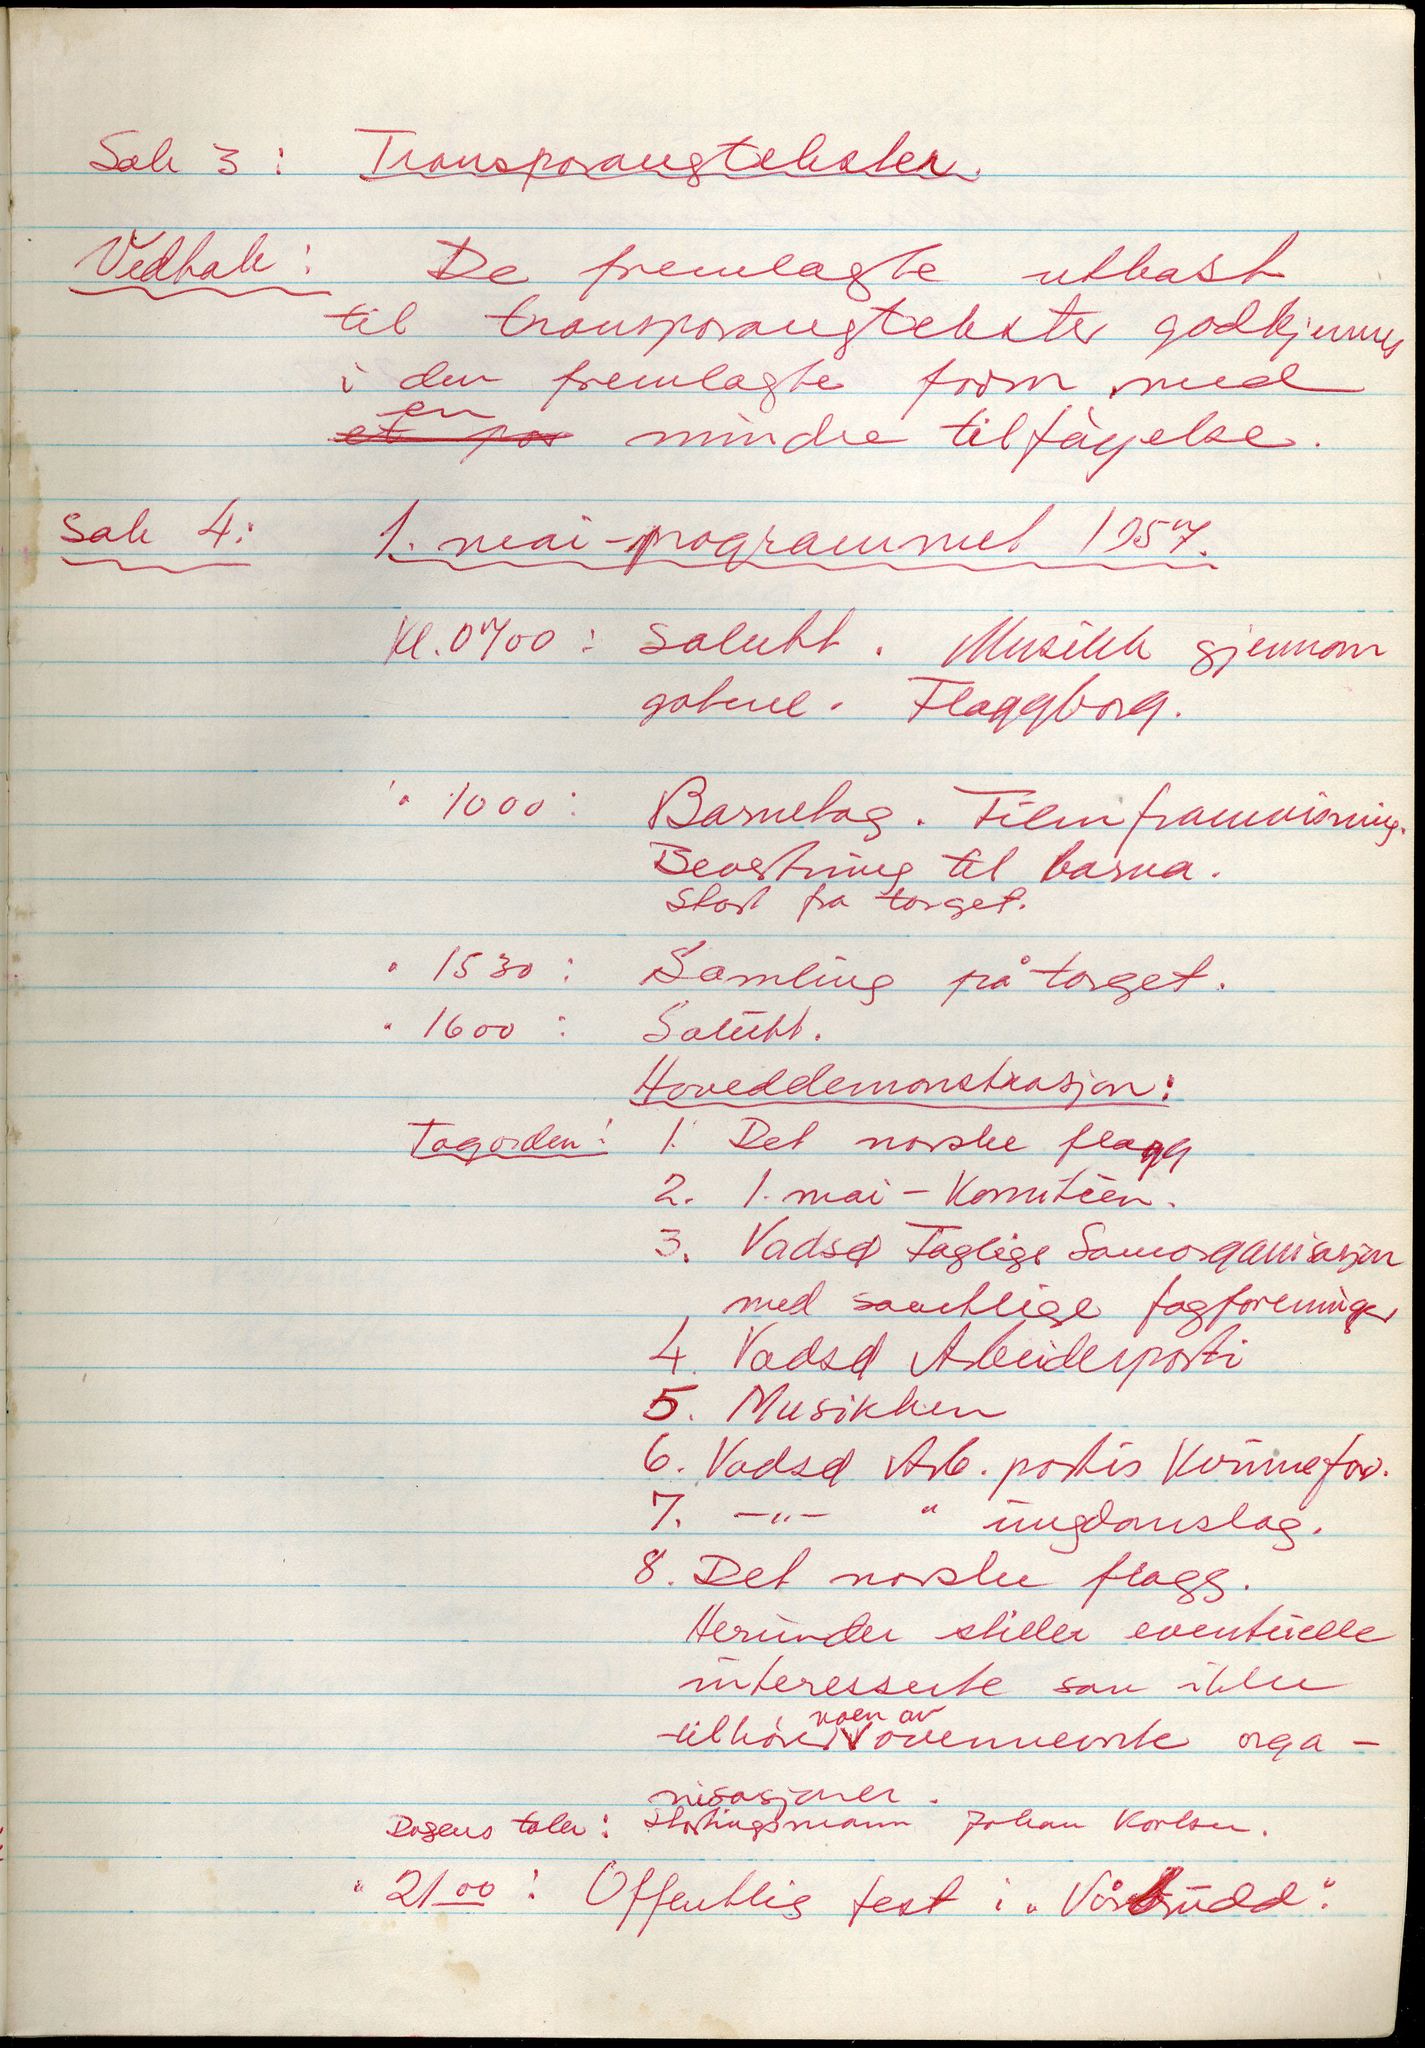 Sak 3: Transparangtekster.
Vedtak: De fremlagte utkast
til transparangtekster godkjennes
i den fremlagte form med
en
et par mindre tilføyelse.
Sak 4: 1. mai-programmet 1957.
Kl. 0700: Salutt. Musikk gjennom
gatene. Flaggborg.
" 1000: Barnetog. Filmframvisning.
Bevertning til barna.
Start fra torget.
" 1530: Samling på torget.
" 1600: Salutt.
Hoveddemonstrasjon:
Togorden: 1. Det norske flagg
2. 1. mai-Komitéen.
3. Vadsø Faglige Samorganisasjon
med samtlige fagforeninger
4. Vadsø Arbeiderparti
5. Musikken
6. Vadsø Arb. partis Kvinnefor.
7. -"- " ungdomslag.
8. Det norske flagg.
Herunder stiller eventuelle
interesserte som ikke
noen av
tilhører V ovennevnte orga-
nisasjoner.
Dagens taler: Stortingsmann Johan Karlsen.
" 2100: Offentlig fest i "Vårbrudd".